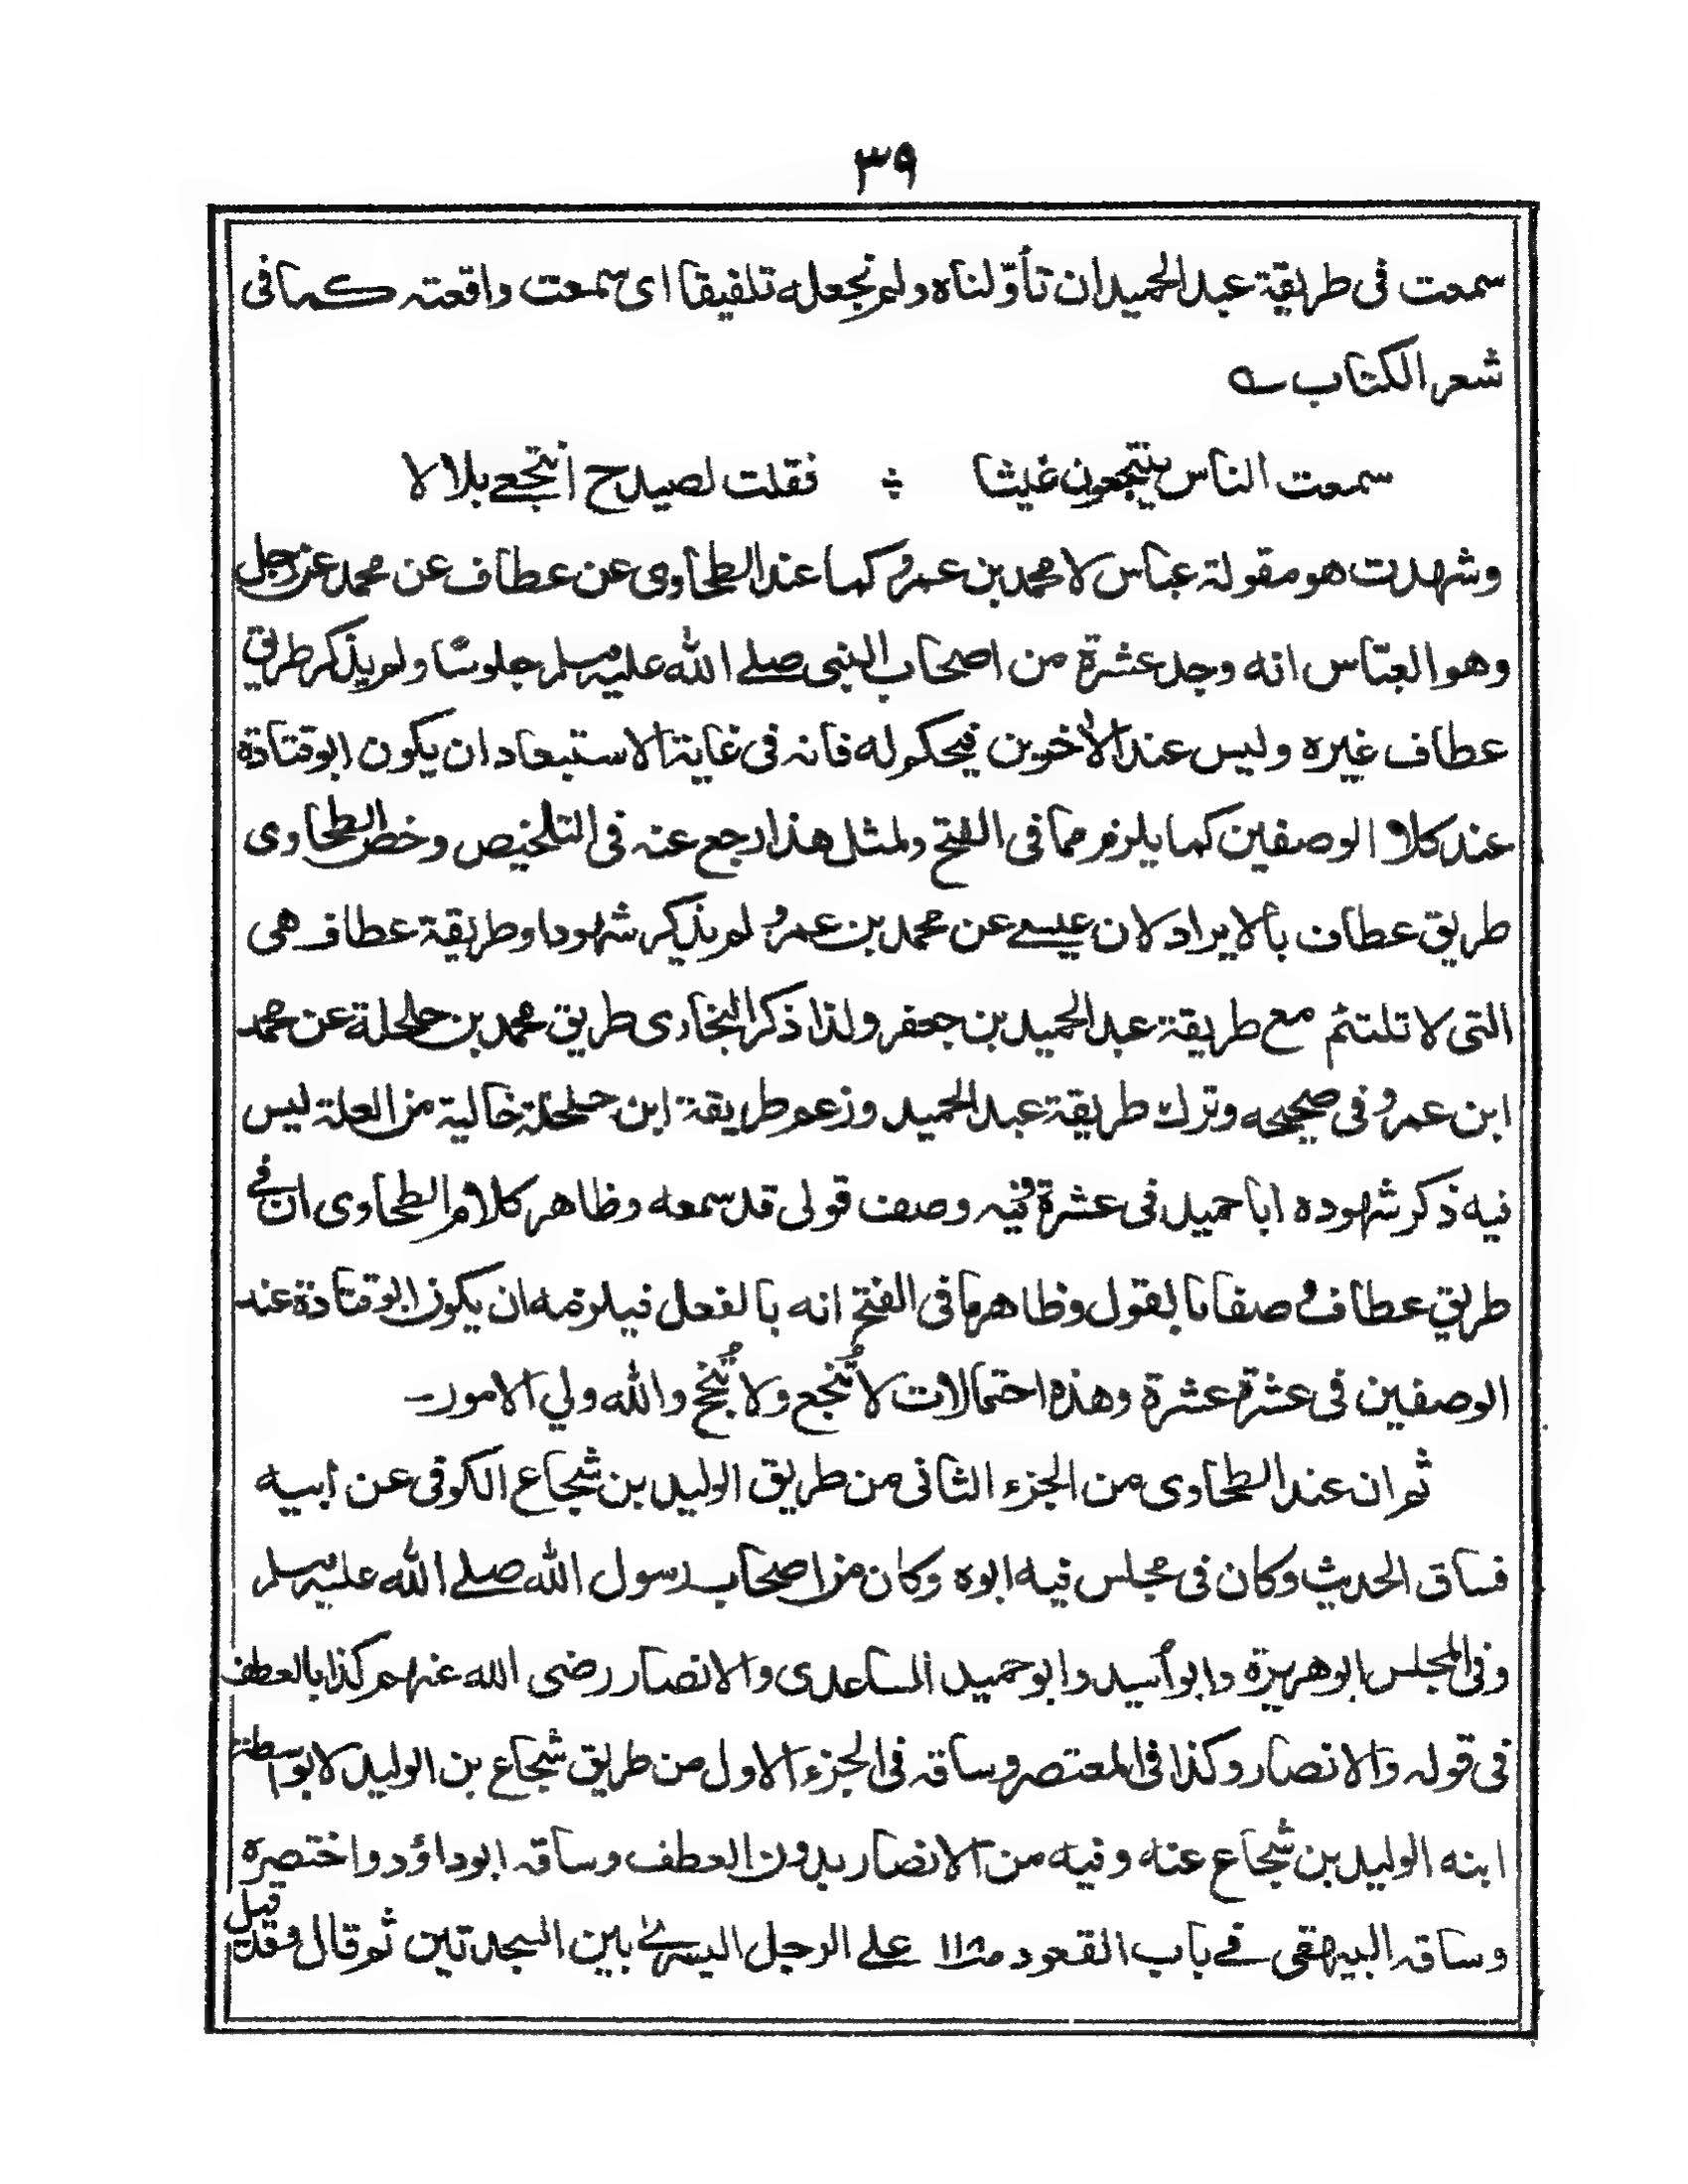 ٣٩
سمعت فى طريقة عبد الحميد ان تأوّلناه ولم نجعله تلفيقا اى سمعت واقعته كما فى
شعر الكتاب ؎
سمعت الناس ينتجعون غيثا ؞ فقلت لصيدح انتجعى بلالا
وشهدت هو مقولة عباس لا محمد بن عمرو كما عند الطحاوى عن عطاف عن محمد عن رجل
وهو العبّاس انه وجد عشرة من اصحاب النبى صلے الله عليه وسلم جلوسًا ولم يذكر طريق
عطاف غيره وليس عند الآخرين فيحكم له فانه فى غاية الاستبعاد ان يكون ابو قتادة
عند كلا الوصفين كما يلزم مما فى الفتح ولمثل هذا رجع عنه فى التلخيص وخص الطحاوى
طريق عطاف بالايراد لان عيسے عن محمد بن عمرو لم يذكر شهودا وطريقة عطاف هى
التى لا تلتئم مع طريقة عبد الحميد بن جعفر ولذا ذكر البخارى طريق محمد بن حلحلة عن محمد
ابن عمرو فى صحيحه وترك طريقة عبد الحميد وزعم طريقة ابن حلحلة خالية من العلة ليس
فيه ذكر شهوده ابا حميد فى عشرة وفيه وصف قولى قد سمعه وظاهر كلام الطحاوى ان فے
طريق عطاف وصفا بالقول وظاهر ما فى الفتح انه بالفعل فيلزمه ان يكون ابو قتادة عند
الوصفين فى عشرة عشرة وهذه احتمالات لا تُنجع ولا تُنجح والله ولي الامور ــ
ثم ان عند الطحاوى من الجزء الثانى من طريق الوليد بن شجاع الكوفى عن أبيه
فساق الحديث وكان فى مجلس فيه ابوه وكان من اصحاب رسول الله صلے الله عليه وسلم
وفى المجلس ابو هريرة وابو أسيد وابو حميد الساعدى والانصار رضى الله عنهم كذا بالعطف
فى قوله والانصار وكذا فى المعتصر وساقه فى الجزء الاول من طريق شجاع بن الوليد لا بواسطة
ابنه الوليد بن شجاع عنه وفيه من الانصار بدون العطف وساقه ابو داؤد واختصره
وساقه البيهقى فے باب القعود علے الرجل اليسرے بين السجدتين ثم قال وقد قيل